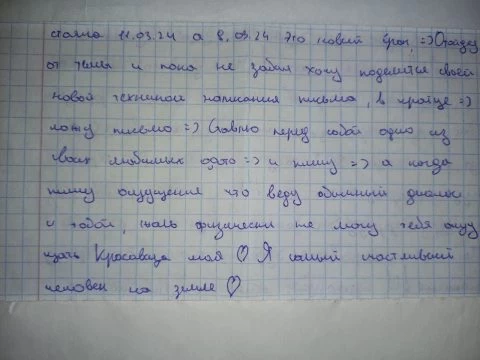 стояла 11.03.24 а 8.03.24 это новый срок =) Отойду
от темы и пока не забыл хочу поделится своей
новой техникой написания письма, в кратце =)
ложу письмо =) Ставлю перед собой одно из
своих любимых фото =) и пишу =) а когда
пишу ощущение что веду обычный диалог
с тобой, жаль физически не могу тебя ощу
щать Красавица моя ♡ Я самый счастливый
человек на земле ♡